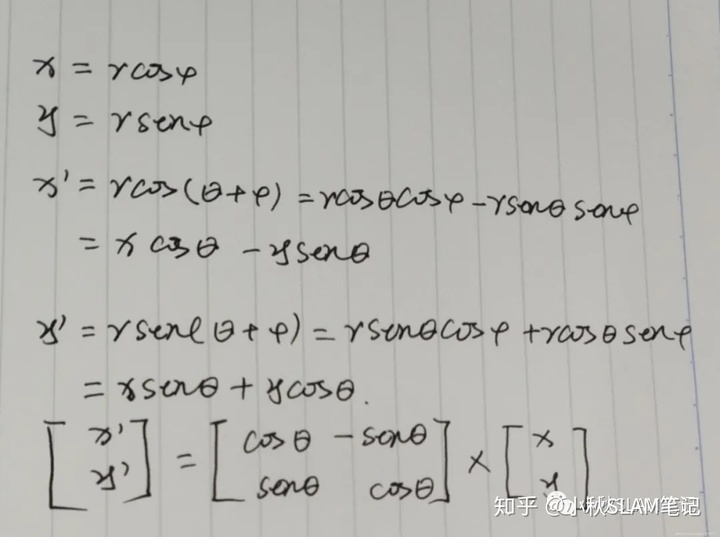 x = rcosφ
y = rsenφ
x' = rcos(θ+φ) = rcosθcosφ - rsenθsenφ
= x cosθ - ysenθ
y' = rsen(θ+φ) = rsenθcosφ + rcosθsenφ
= xsenθ + ycosθ.
[x' y'] = [cosθ -senθ senθ cosθ] × [x y]
知乎 @小秋SLAM笔记